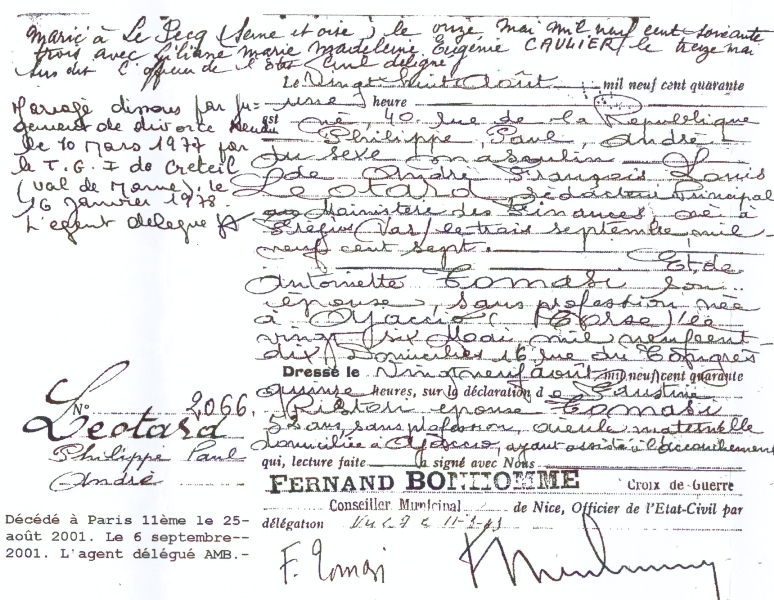 Marié à Le Pecq (Seine et oise) le onze, mai mil neuf cent soixante
trois avec Liliane Marie Madeleine Eugénie CAULIER / le treize mai
sus dit L'officier de l'état Civil délégué
Mariage dissous par ju=
gement de divorce rendu
le 10 Mars 1977 par
le T. G. I de Créteil
(Val de Marne). le
16 Janvier 1978.
L'agent délégué
N° 2066.
Leotard
Philippe Paul
André
Décédé à Paris 11ème le 25-
août 2001. Le 6 septembre--
2001. L'agent délégué AMB.-
Le Vingt huit Août mil neuf cent quarante
une heure
est né, 40 rue de la République
Philippe, Paul, André
du sexe masculin
de André François Louis
Leotard, rédacteur Principal
au Ministère des Finances, né à
Fréjus (Var) le trois septembre mil
neuf cent sept. Et de
Antoinette Tomasi son
épouse, sans profession née
à Ajaccio (Corse) le
vingt six Mai mil neuf cent
dix, Domiciliés 16 rue du Congrès
Dressé le Vingt neuf août mil neuf cent quarante
quinze heures, sur la déclaration de Faustine
épouse Tomasi
ans, sans profession, aieule maternelle
domiciliée à Ajaccio, ayant assisté à l'accouchement
qui, lecture faite a signé avec Nous
FERNAND BONHOMME Croix de Guerre
Conseiller Municipal de Nice, Officier de l'Etat-Civil par
délégation
F. Tomasi